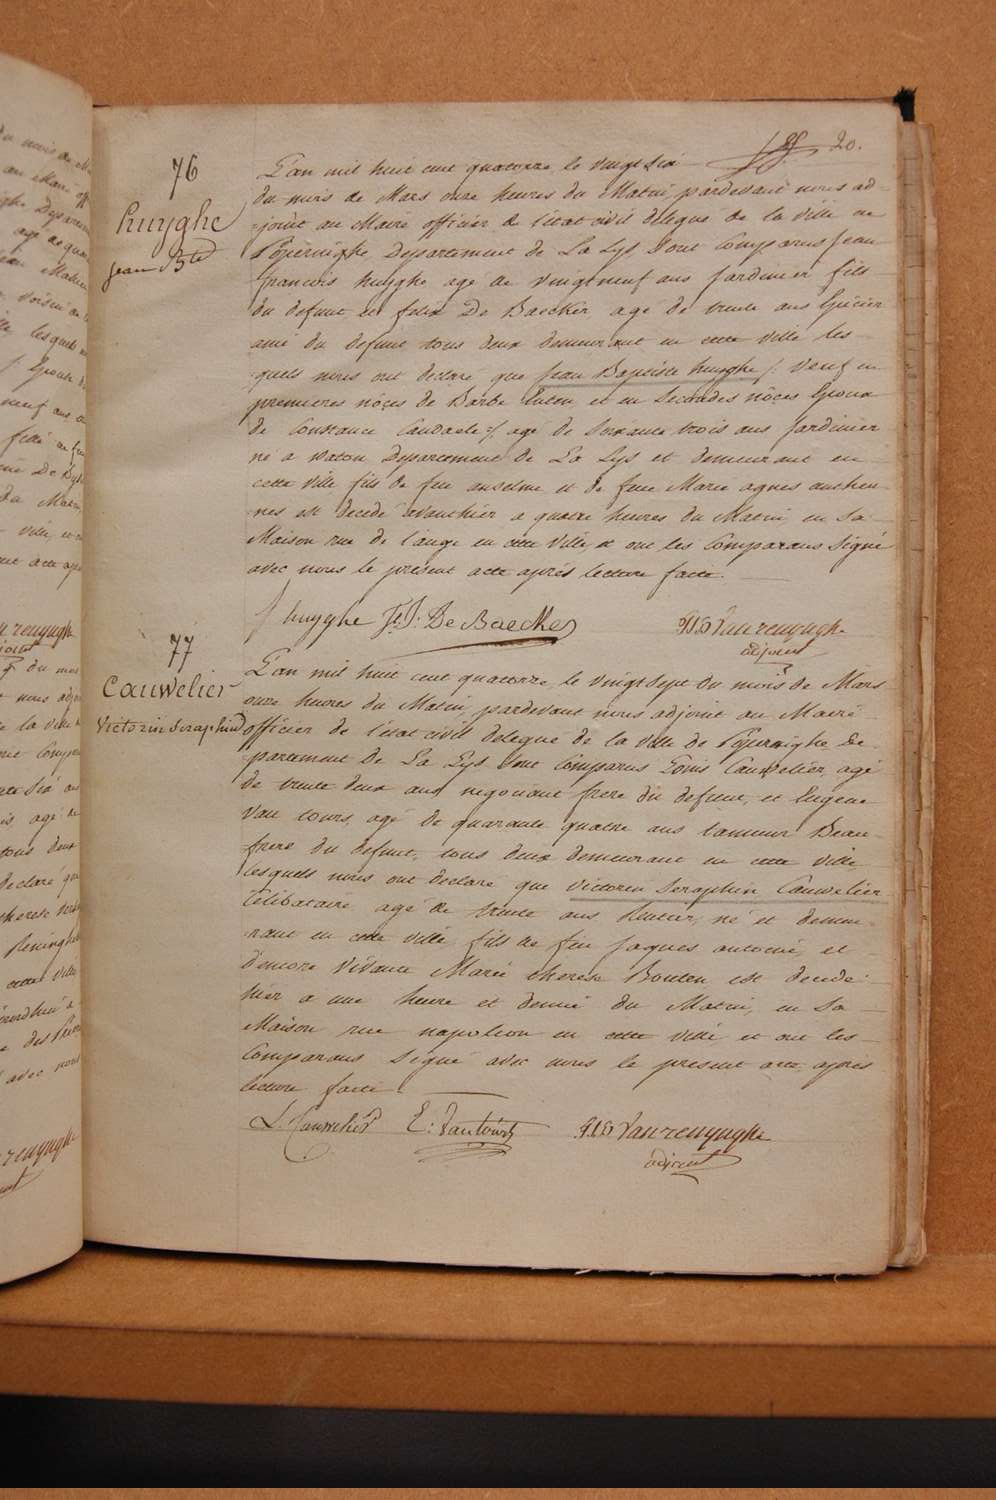 20.
76
huyghe
jean Bte
L'an mil huit cent quatorze, le vingt six
du mois de Mars onze heures du Matin, pardevant nous ad-
joint au Maire officier de l'état civil délégué de la ville de
Poperinghe, Departement de La Lys, sont Comparus Jean
francois huyghe agé de vingtneuf ans Jardinier fils
du defunt et felix De Baecker, agé de trente ans Epicier
ami du defunt tous deux demeurant en cette ville les-
quels nous ont declaré que Jean Baptiste huyghe /: Veuf en
premieres nôçes de Barbe et en Secondes nôçes Epoux
de Constance Candaele :/ agé de Soixante trois ans Jardinier
né a Watou Departement de La Lys et demeurant en
cette ville fils de feu anselme et de feue Marie agnes
nes est decedé avanthier a quatre heures du Matin, en Sa
Maison rue de l'ange en cette Ville et ont les Comparans Signé
avec nous le présent acte aprés lecture faite.
J huyghe F: J: De Baecker
Vanrenynghe
adjoint
77
Cauwelier
Victorin Seraphin
L'an mil huit cent quatorze, le vingt sept du mois de Mars
onze heures du Matin, pardevant nous adjoint au Maire
officier de l'état civil delegué de la Ville de Poperinghe De-
partement de La Lys, sont Comparus Louis Cauwelier, agé
de trente deux ans negociant frere du defunt, et Eugene
Van tours, agé de quarante quatre ans tanneur Beau-
frere du defunt, tous deux demeurant en cette ville
lesquels nous ont declaré que Victorin Seraphin Cauwelier
Celibataire agé de trente ans Rentier, né et demeu-
rant en cette ville fils de feu Jaques antoine, et
d'encore Vivante Marie therese Bouten est decedé
hier a une heure et demie du Matin, en Sa
Maison rue napoleon en cette ville et ont les
Comparans Signé avec nous le present acte, aprés
lecture faite
L. Cauwelier E: Vantours
Vanrenynghe
adjoint